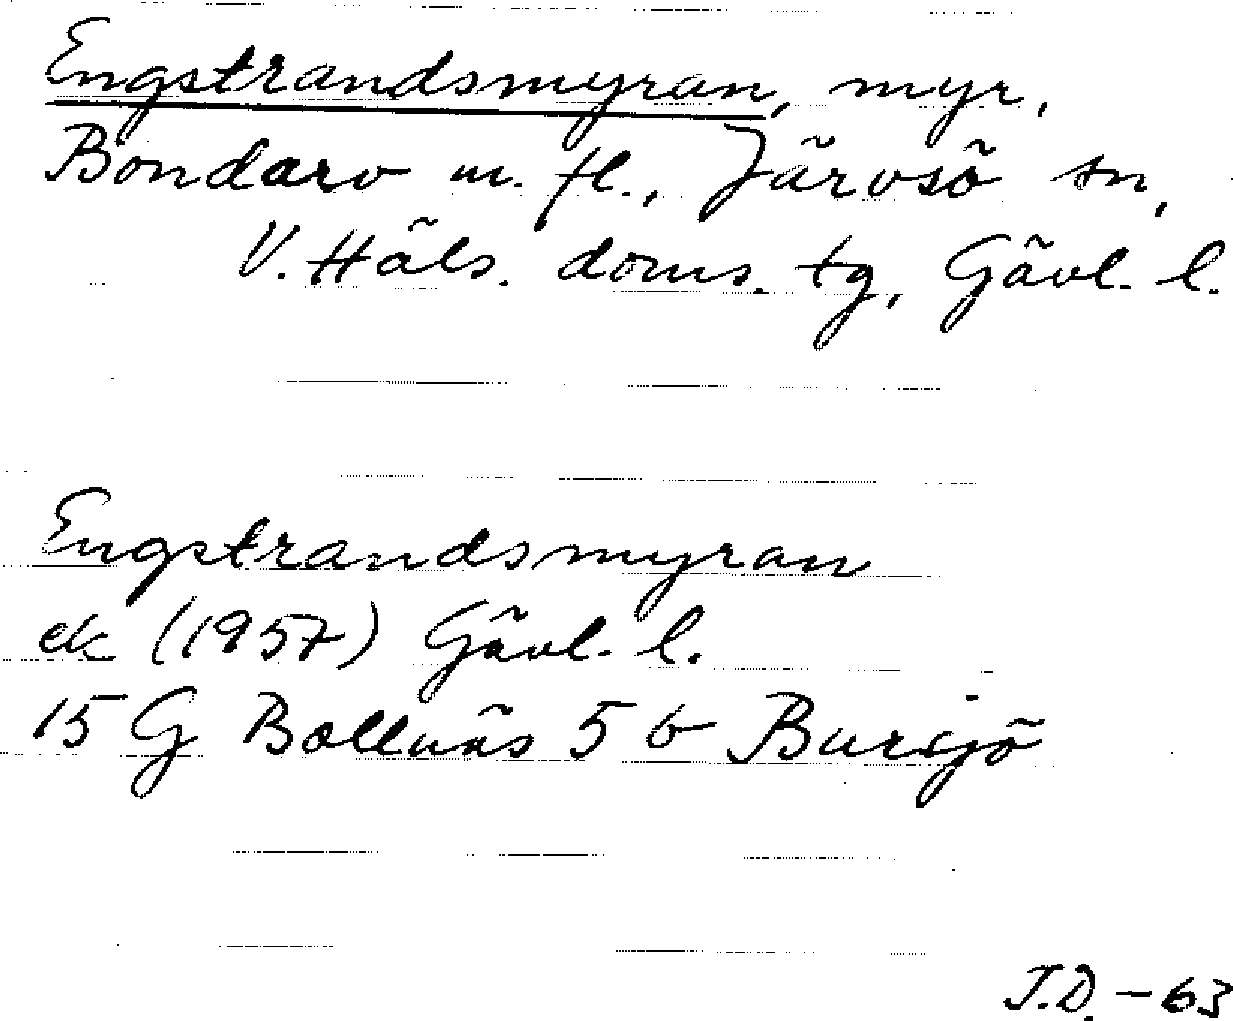 Engstrandsmyran, myr,
Bondarv m. fl., Järvsö sn,
V. Häls. doms. tg, Gävl. l.
Engstrandsmyran
ek (1957) Gävl. l.
15 G Bollnäs 5 b Bursjö
J.D. - 63